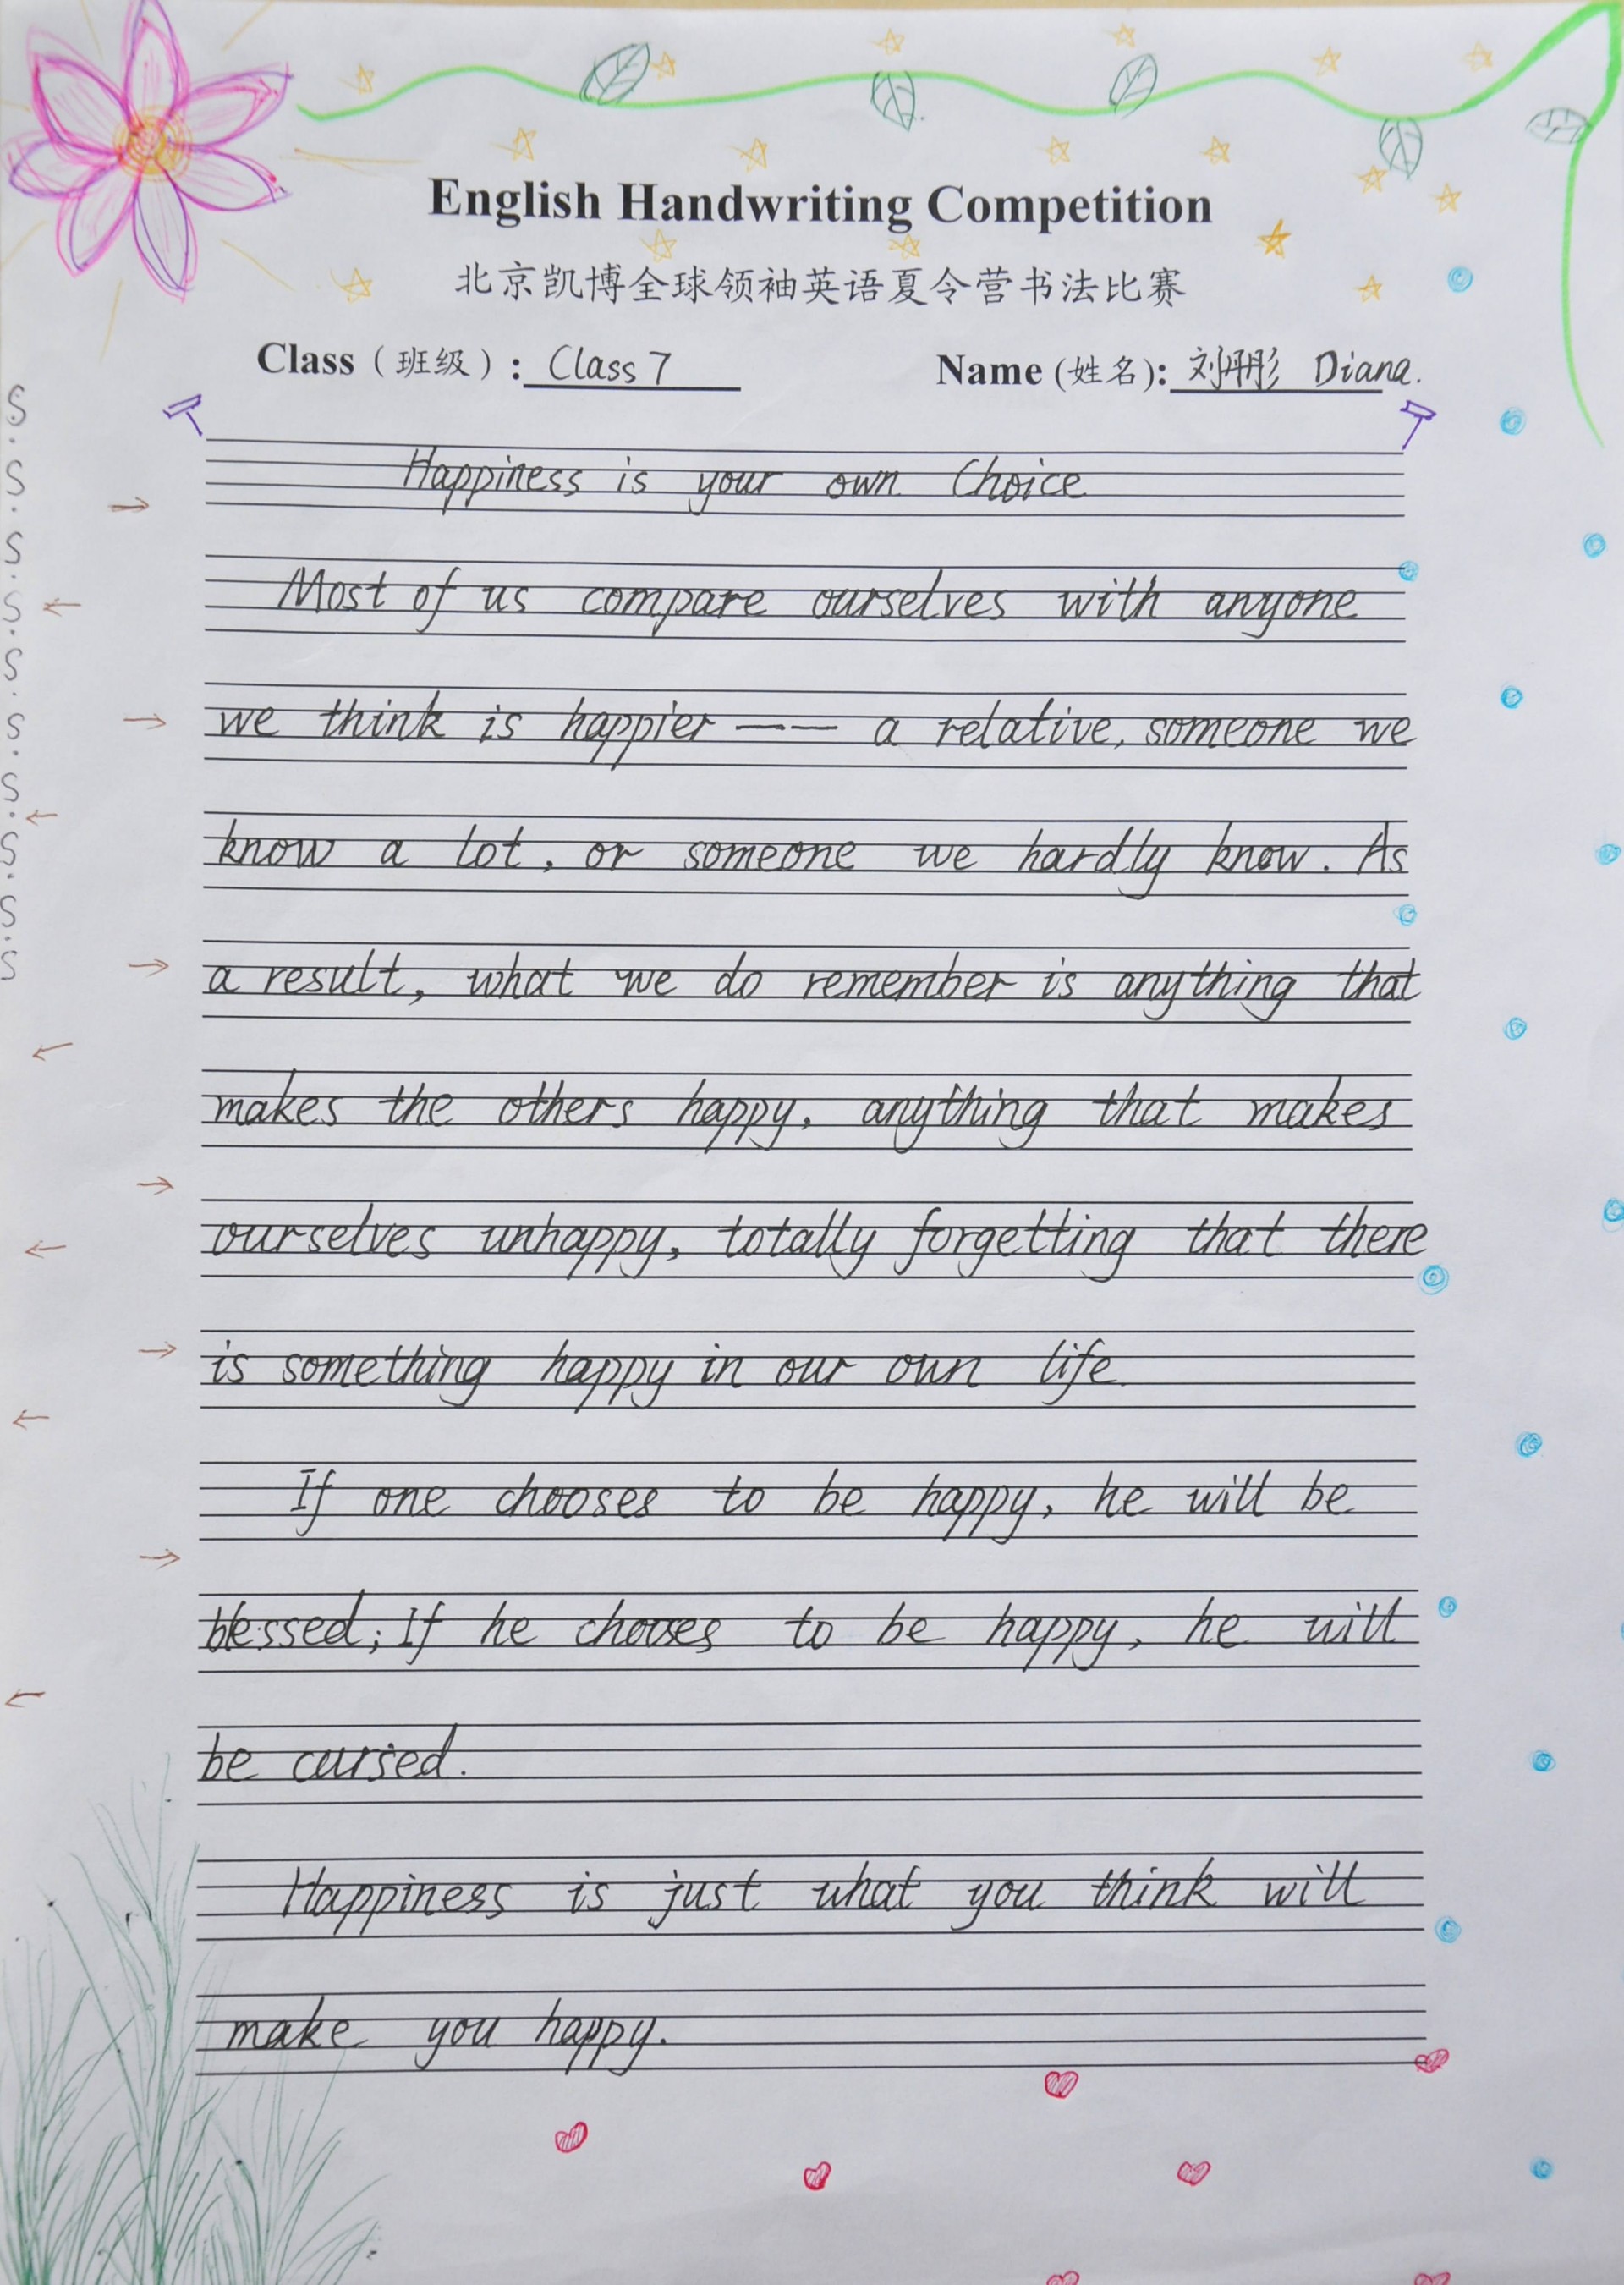 English Handwriting Competition
北京凯博全球领袖英语夏令营书法比赛
Class（班级）: Class 7 Name (姓名): 刘彤彤 Diana.
Happiness is your own Choice
Most of us compare ourselves with anyone
we think is happier —— a relative, someone we
know a lot, or someone we hardly know. As
a result, what we do remember is anything that
makes the others happy, anything that makes
ourselves unhappy, totally forgetting that there
is something happy in our own life.
If one chooses to be happy, he will be
blessed; If he chooses to be happy, he will
be cursed.
Happiness is just what you think will
make you happy.